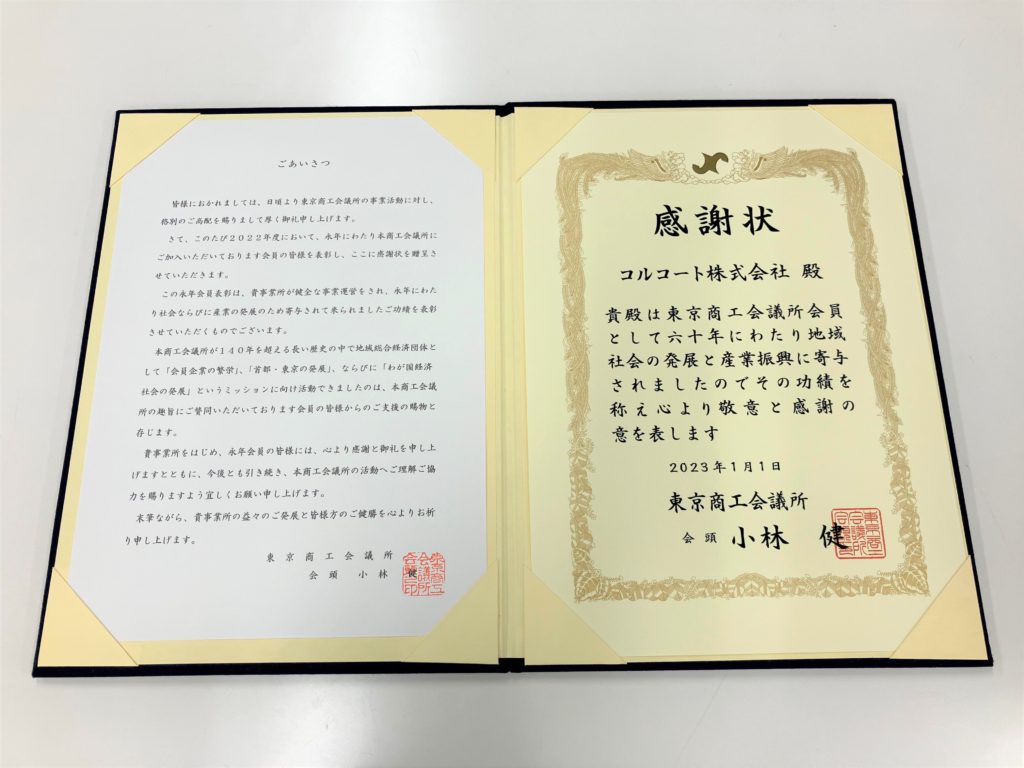 ごあいさつ
皆様におかれましては、日頃より東京商工会議所の事業活動に対し、
格別のご高配を賜りまして厚く御礼申し上げます。
さて、このたび2022年度において、永年にわたり本商工会議所に
ご加入いただいております会員の皆様を表彰し、ここに感謝状を贈呈さ
せていただきます。
この永年会員表彰は、貴事業所が健全な事業運営をされ、永年にわた
り社会ならびに産業の発展のため寄与されて来られましたご功績を表彰
させていただくものでございます。
本商工会議所が140年を超える長い歴史の中で地域総合経済団体と
して「会員企業の繁栄」、「首都・東京の発展」、ならびに「わが国経済
社会の発展」というミッションに向け活動できましたのは、本商工会議
所の趣旨にご賛同いただいております会員の皆様からのご支援の賜物と
存じます。
貴事業所をはじめ、永年会員の皆様には、心より感謝と御礼を申し上
げますとともに、今後とも引き続き、本商工会議所の活動へご理解ご協
力を賜りますよう宜しくお願い申し上げます。
末筆ながら、貴事業所の益々のご発展と皆様方のご健勝を心よりお祈
り申し上げます。
東京商工会議所
会頭 小林 健
感謝状
コルコート株式会社 殿
貴殿は東京商工会議所会員
として六十年にわたり地域
社会の発展と産業振興に寄与
されましたのでその功績を
称え心より敬意と感謝の
意を表します
2023年1月1日
東京商工会議所
会頭 小林 健